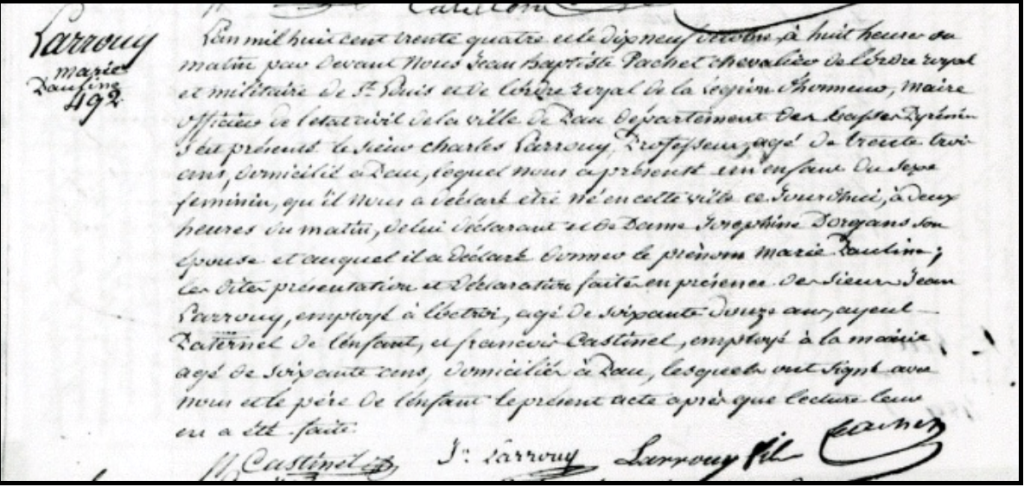 Larrouy
marie
Pauline
492
L'an mil huit cent trente quatre et le dix neuf octobre, à huit heures du
matin par devant Nous Jean Baptiste Pachet chevalier de l'ordre royal
et militaire de St Louis et de l'ordre royal de la Légion d'honneur, maire
officier de l'état civil de la ville de Pau département des basses Pyrénées
s'est présenté le sieur Charles Larrouy, Professeur, agé de trente trois
ans, domicilié à Pau, lequel nous a présenté un enfant du sexe
féminin, qu'il nous a déclaré être né en cette ville ce Jourd'hui, à deux
heures du matin, de lui déclarant et de Dame Josephine Dorgans son
épouse et auquel il a déclaré donner le prénom marie Pauline;
les dites présentation et déclaration faites en présence des sieurs Jean
Larrouy, employé à l'octroi, agé de soixante douze ans, ayeul
Paternel de l'enfant, et françois Castinel, employé à la mairie,
agé de soixante ans, domiciliés à Pau, lesquels ont signé avec
nous et le père de l'enfant le présent acte après que lecture leur
en a été faite.
Castinel Jn Larrouy Larrouy fils Pachet